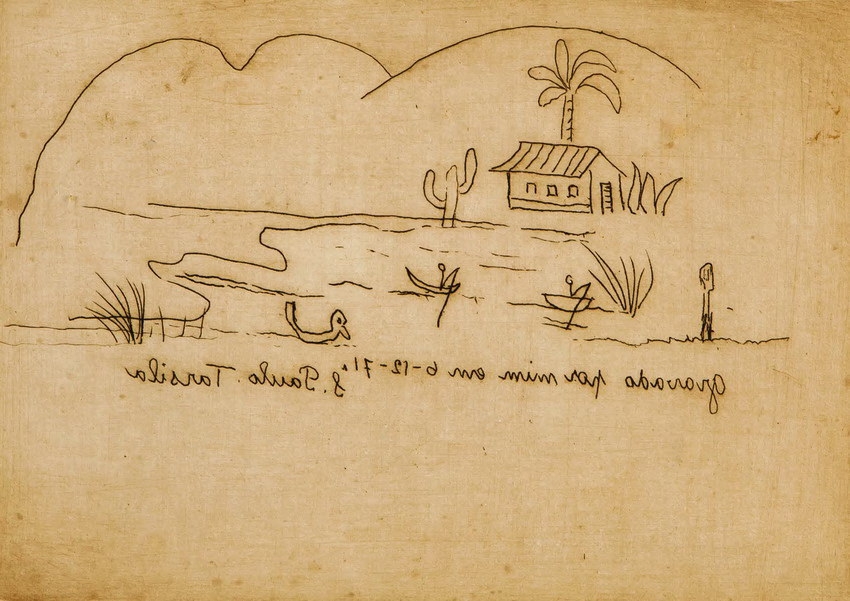 gravado por mim em 6-12-71 S. Paulo. Tarsila